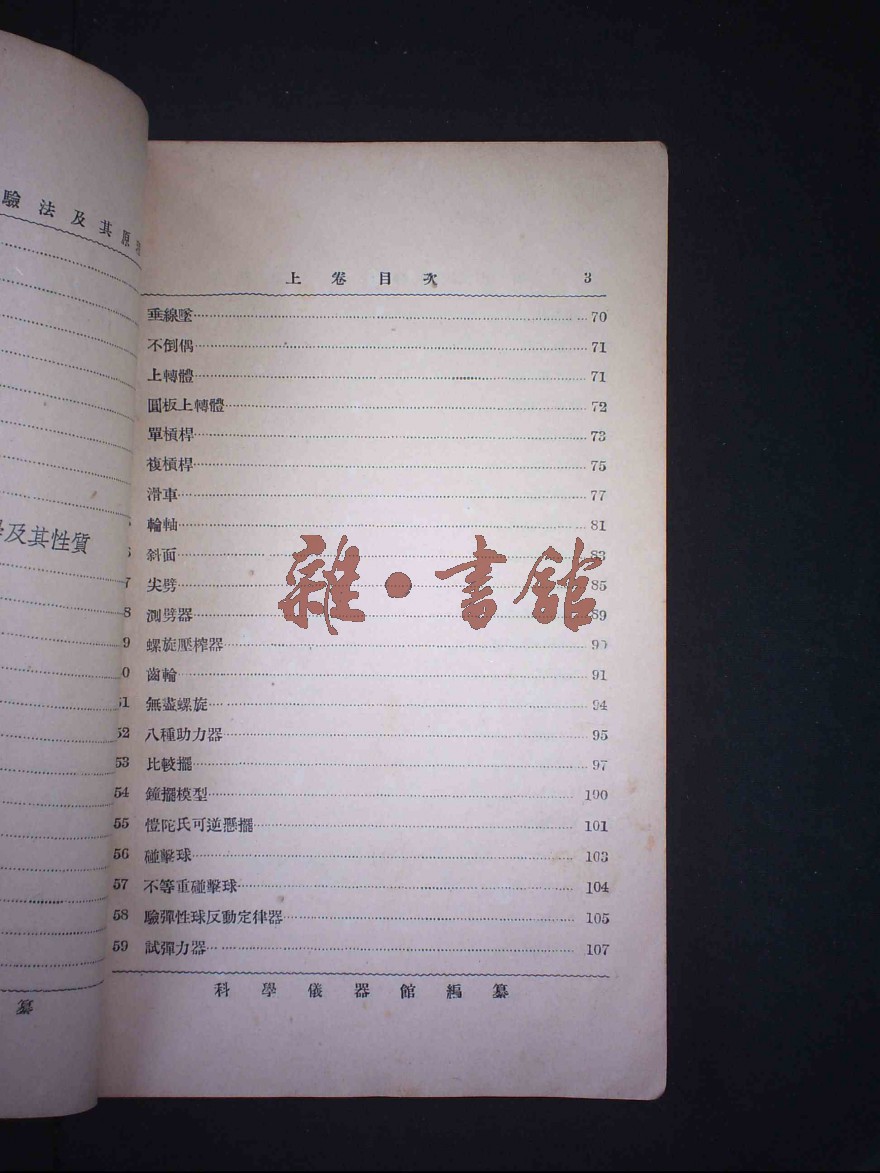 驗法及其原
及其性質
7
8
9
0
51
52
53
54
55
56
57
58
59
纂
上卷目次 3
垂線墜 70
不倒偶 71
上轉體 71
圓板上轉體 72
單槓桿 73
複槓桿 75
滑車 77
輪軸 81
斜面 83
尖劈 85
測劈器 89
螺旋壓榨器 90
齒輪 91
無盡螺旋 94
八種助力器 95
比較擺 97
鐘擺模型 100
愷陀氏可逆懸擺 101
碰擊球 103
不等重碰擊球 104
驗彈性球反動定律器 105
試彈力器 107
科學儀器館編纂
雜·書館